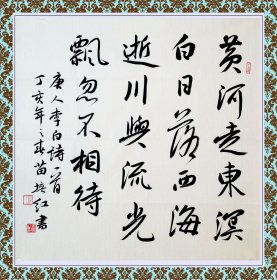 黄河走東溟
白日落西海
逝川與流光
飘忽不相待
唐人李白诗一首
丁亥年之春苗培红書